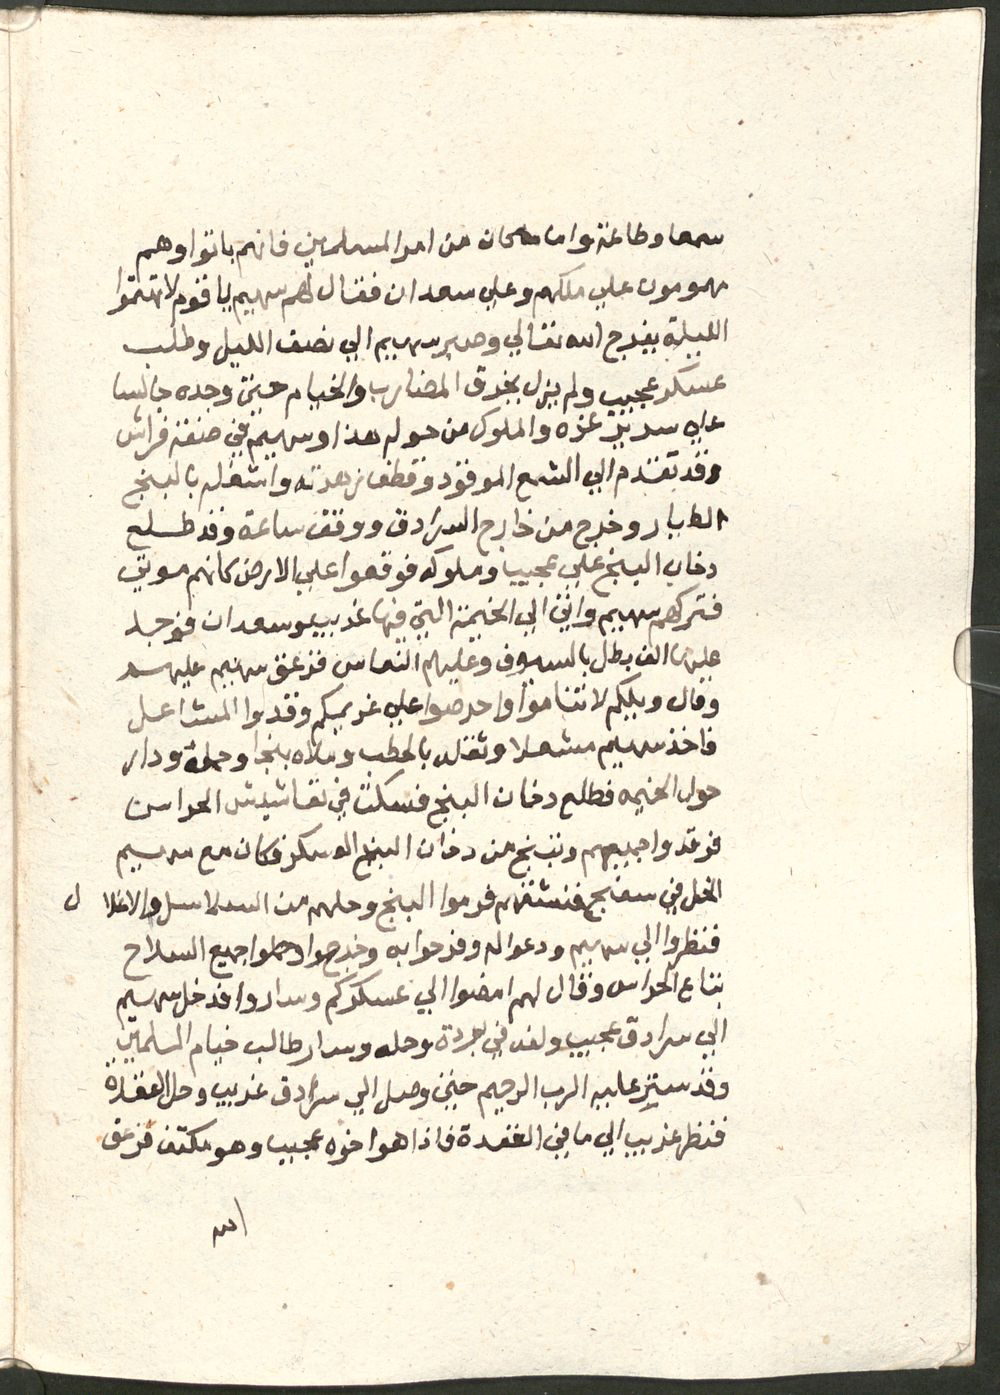 سمعا وطاعة واما ما كان من امر المسلمين فانهم باتوا وهم
مهمومون علي ملكهم وعلي سعدان فقال لهم سهيم يا قوم لا تهتموا
الليلة يفرج الله تعالي وصبر سهيم الي نصف الليل وطلب
عسكر عجيب ولم يزل يخرق المضارب والخيام حتي وجده جالسا
علي سرير عزه والملوك من حوله هذا وسهيم في صفة فراش
وقد تقدم الي الشمع الموقود وقطف زهرته واشغله بالبنج
الطيار وخرج من خارج السرادق ووقف ساعة وقد طلع
دخان البنج علي عجيب وملوكه فوقعوا علي الارض كانهم موتي
فتركهم سهيم واتي الي الخيمة التي فيها غريب وسعدان فوجد
عليها الف بطل بالسيوف وعليهم النعاس فزعق سهيم عليهم
وقال ويلكم لا تناموا واحرصوا علي غريمكم وقدوا المشاعل
فاخذ سهيم مشعلا وثقله بالحطب وملاه بنجا وحمله ودار
حول الخيمه فطلع دخان البنج فسكن في نقاشيش الحراس
فرقدوا جميعهم وتبنج من دخان البنج العسكر وكان مع سهيم
الخل في سفنج فنشقهم فرموا البنج وحلهم من السلاسل والاغلال
فنظروا الي سهيم ودعوا له وفرحوا به وخرجوا وحملوا جميع السلاح
بتاع الحراس وقال لهم امضوا الي عسكركم وساروا فدخل سهيم
الي سرادق عجيب ولفه في بردة وحله وسار طالب خيام المسلمين
وقد ستر عليه الرب الرحيم حتي وصل الي سرادق غريب وحل العقدة
فنظر غريب الي ما في العقدة فاذا هوا اخوه عجيب وهو مكتف فزعق
الله